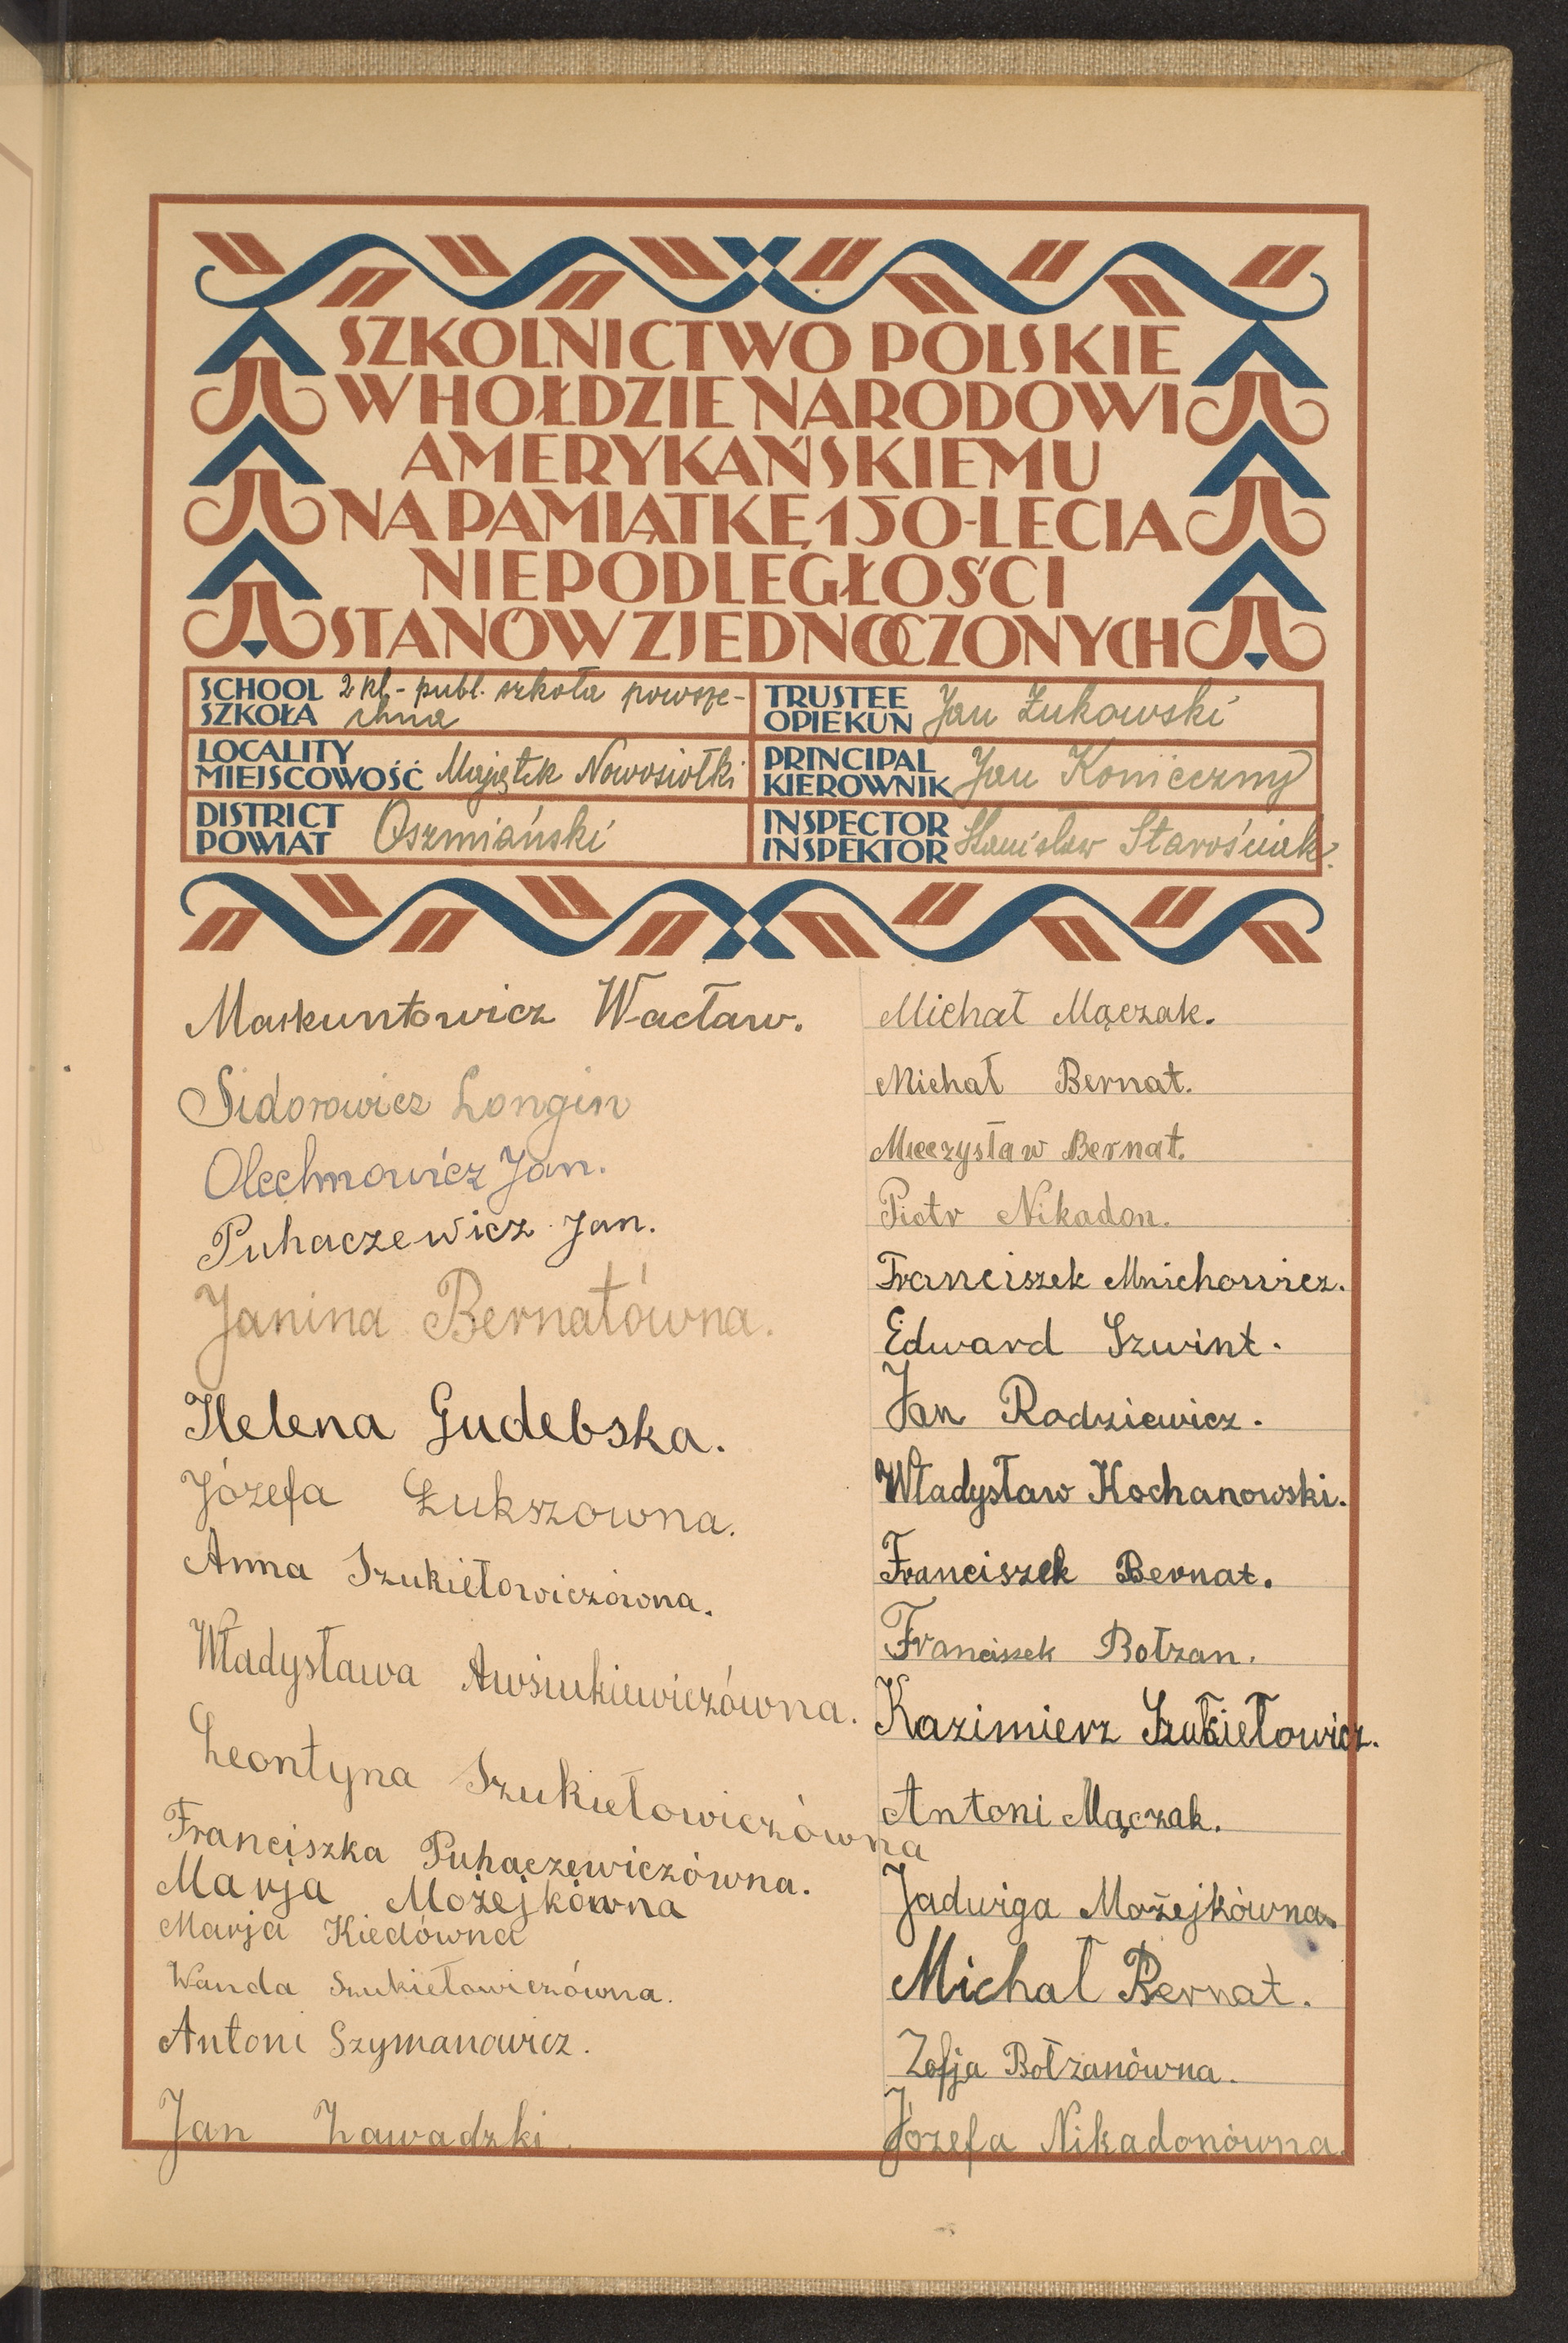 SZKOLNICTWO POLSKIE
W HOŁDZIE NARODOWI
AMERYKAŃSKIEMU
NA PAMIĄTKĘ 150-LECIA
NIEPODLEGŁOŚCI
STANÓW ZJEDNOCZONYCH
SCHOOL
SZKOŁA
2 kl. - publ. szkoła powsze-
chna
TRUSTEE
OPIEKUN
Jan Żukowski
LOCALITY
MIEJSCOWOŚĆ
Majątek Nowosiołki
PRINCIPAL
KIEROWNIK
Jan Konieczny
DISTRICT
POWIAT
Oszmiański
INSPECTOR
INSPEKTOR
Stanisław Starościak.
Maskuntowicz Wacław.
Sidorowicz Longin
Olechnowicz Jan.
Puhaczewicz Jan.
Janina Bernatówna.
Helena Gudebska.
Józefa Łukszowna.
Anna Szukiełowiczówna.
Władysława Awsiukiewiczówna.
Leontyna Szukiełowiczówna
Franciszka Puhaczewiczówna.
Marja Możejkówna
Marja Kiedówna
Wanda Szukiełowiczówna.
Antoni Szymanowicz.
Jan Zawadzki.
Michał Mączak.
Michał Bernat.
Mieczysław Bernat.
Piotr Nikadon.
Franciszek Mnichowicz.
Edward Szwint.
Jan Rodziewicz.
Władysław Kochanowski.
Franciszek Bernat.
Franciszek Bołzan.
Kazimierz Szukiełowicz.
Antoni Mączak.
Jadwiga Możejkówna.
Michał Bernat.
Zofja Bołzanówna.
Józefa Nikadonówna.